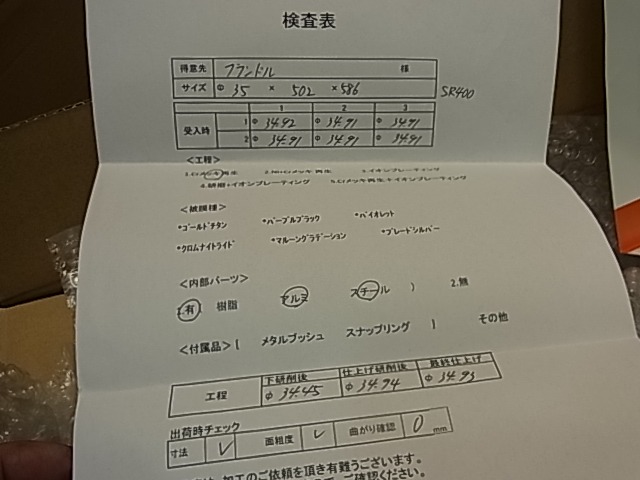 検査表
得意先 フランドル 様
サイズ Φ 35 × 502 × 586 SR400
1 2 3
受入時 1 Φ 34.92 Φ 34.91 Φ 34.91
2 Φ 34.91 Φ 34.91 Φ 34.91
<工程>
1.Crメッキ再生 2.Ni-Crメッキ再生 3.イオンプレーティング
4.研磨+イオンプレーティング 5.Crメッキ再生+イオンプレーティング
<被膜種>
*ゴールドチタン *パープルブラック *バイオレット
*クロムナイトライド *マルーングラデーション *ブレードシルバー
<内部パーツ>
1.有 樹脂 アルミ スチール ) 2.無
<付属品> ( メタルブッシュ スナップリング ) その他
工程 下研削後 仕上げ研削後 最終仕上げ
Φ 34.45 Φ 34.94 Φ 34.93
出荷時チェック
寸法 ✓ 面粗度 ✓ 曲がり確認 0 mm
加工のご依頼を頂き有難うございます。
ご確認ください。